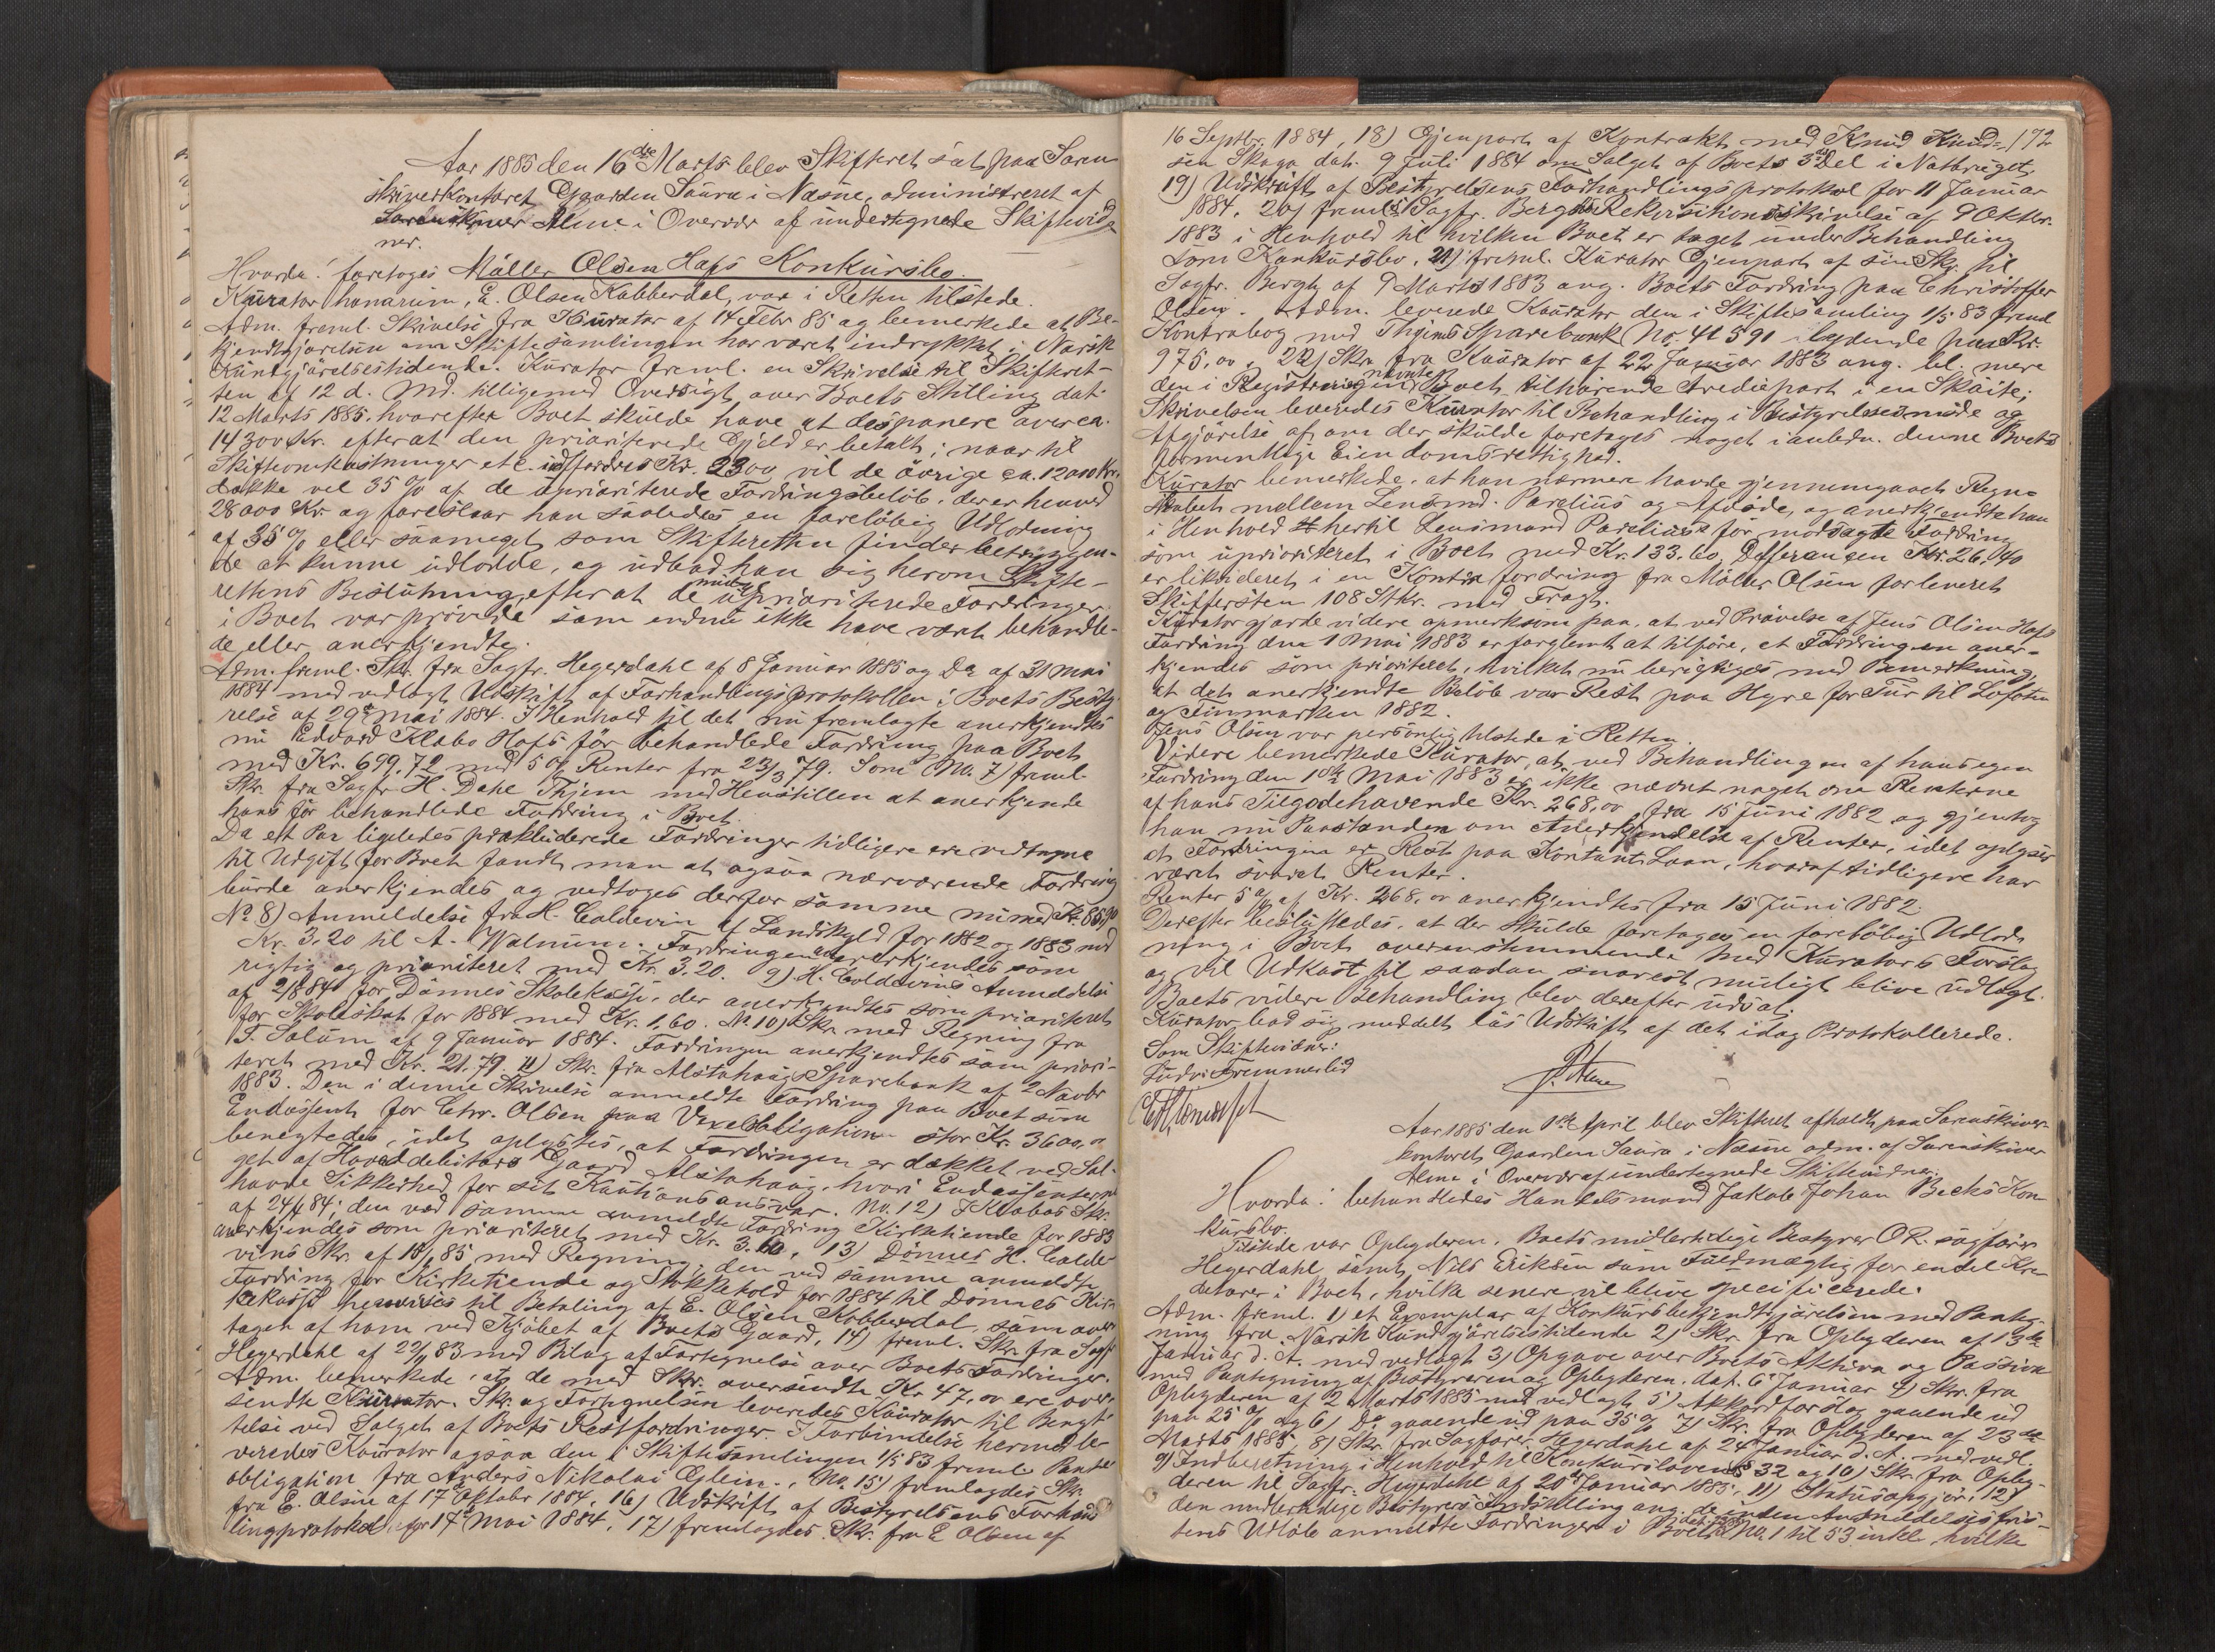 Aar 1885 den 16de Marts blev Skifteret sat paa Soren
skriverkontoret Gaarden Saura i Næsne, administreret af
Sorenskriver Alme i Overvær af undertegnede Skiftevid
ner.
Hvorda: foretoges Møller Olsen Hafs Konkursbo.
Kurator honorum, E. Olsen Kobberdal, var i Retten tilstede.
Adm. freml. Skrivelse fra Kurator af 14 Febr 85 og bemerkede at Be-
kjendtgjørelsen om Skiftesamlingen har været indrykket i Norsk
Kundgjørelsestidende. Kurator freml. en Skrivelse til Skifteret-
ten af 12 d. Md. tilligemed Oversigt over Boets Stilling dat.
12 Marts 1885. hvorefter Boet skulde have at desponere over ca.
14300 Kr. efterat den prioriterede Gjeld er betalt; naar til
Skifteomkostninger etc. idfordres Kr. 2300 vil de øvrige ca. 12000 Kr.
dække vel 35 % af de uprioriterede Fordringsbeløb, der er henved
28000 Kr. og foreslaar han saaledes en foreløbig Udlodning
af 35 % eller saameget som Skifteretten finder betryggen-
de at kunne udlodde, og udbad han sig herom Skifte-
rettens Beslutning, efterat de mulige uprioriterede Fordringer
i Boet var prøvede som endnu ikke have vært behandle-
de eller anerkjendte.
Adm. freml. Skr. fra Sagfr. Hegerdahl af 8 Januar 1885 og Do af 31 Mai
1884 med vedlagt Udskrift af Forhandlingsprotokollen i Boets Besty
relse af 29de Mai 1884. I Henhold til det nu fremlagte anerkjendtes
nu Edvard Klabo Hofs før behandlede Fordring paa Boet
med Kr. 699,72 med 5 % Renter fra 23/3 79. Som (No. 7) freml.
Skr. fra Sagfr H. Dahl Thjem med Henstillen at anerkjende
hans før behandlede Fordring i Boet.
Da et Par ligeledes prækluderede Fordringer tidligere ere vedtagne
til Udgift for Boet fandt man at ogsaa nærværende Fordring
burde anerkjendes og vedtoges derfor samme nu med Kr. 85,90
No 8) Anmeldelse fra H. Coldevin af Landskyld for 1882 og 1883 med
Kr. 3.20 til A. Walnum. Fordringen anerkjendes som
rigtig og prioriteret med Kr. 3.20. 9) H. Coldevins Anmeldelse
af 2/8 84 for Dønnes Skolekasse, der anerkjendtes som prioriteret
for Skoleskat for 1884 med Kr. 1,60. No 10) Skr. med Regning fra
T. Solum af 9 Januar 1884. Fordringen anerkjendtes som priori-
teret med Kr. 21,79. 11) Skr. fra Alstahaug Sparebank af 2 Novbr
1883. Den i denne Skrivelse anmeldte Fordring paa Boet som
Endossent for Chr. Olsen paa Vexelobligation stor Kr. 3600,00
benegtedes, idet oplystes, at Fordringen er dækket ved Sal-
get af Hoveddebitors Gaard Alstahaug, hvori Endossenterne
havde Sikkerhed for sit Kautionsansvar. No. 12) Klabos Skr.
af 24/1 84; den ved samme anmeldte Fordring Kirketiende for 1883
anerkjendes som prioriteret med Kr. 3.60, 13) Dønnes H. Colde-
vins Skr. af 18/1 85 med Regning; den ved samme anmeldte
Fordring for Kirketiende og Stokkehold for 1884 til Dønnes Kir-
kekasse henvises til Betaling af E. Olsen Kobberdal, som over-
taget af ham ved Kjøbet af Boets Gaard. 14) freml. Skr. fra Sagf
Hegerdahl af 29/11 83 med Bilag af Fortegnelse over Boets Fordringer.
Adm. bemerkede, at de med Skr. oversendte Kr 47,00 ere over-
sendte Kurator. Skr. og Fortegnelsen leveredes Kurator til Benyt-
telse ved Salget af Boets Restfordringer. I Forbindelse hermed le-
veredes Kurator ogsaa den i Skiftesamlingen 1/5 83 freml. Pante
obligation fra Anders Nikolai Glein. No. 15) fremlagdes Skr.
fra E. Olsen af 17de Oktobr 1884, 16) Udskrift af Bestyrelsens Forhand
lingsprotokol for 17de Mai 1884, 17) fremlagdes Skr. fra E Olsen af
172
16 Septbr. 1884, 18) Gjenpart af Kontrakt med Knud Knud-
sen Skaga dat. 9 Juli 1884 om Salget af Boets 3die Del i Notbruget,
19) Udskrift af Bestyrelsens Forhandlingsprotokol for 11 Januar
1884. 20) freml. Sagfr. Berghs Rekvisitionsskrivelse af 9 Oktbr.
1883 i Henhold til hvilken Boet er taget under Behandling
som Konkursbo, 21) freml. Kurator Gjenpart af sin Skr. til
Sagfr. Bergh af 9 Marts 1883 ang. Boets Fordring paa Christoffer
Olsen. Adm. leverede Kurator den i Skiftesamling 1/5 83 freml
Kontrabog med Thjems Sparebank No. 41591 lydende paa Kr.
975,00, 22) Skr. fra Kurator af 22 Januar 1883 ang. bl. mere
den i Registreringen nævnte Boet tilhørende Trediepart i en Skøite;
Skrivelsen leveredes Kurator til Behandling i Bestyrelsesmøde og
Afgjørelse af om der skulde foretages noget i anledn. denne Boets
formentlige Eiendomsrettighed.
Kurator bemerkede, at han nærmere havde gjennemgaaet Regn-
skabet mellem Lensmd. Parelius og Afdøde, og anerkjendte han
i Henhold hertil Lensmand Parelius's før modsagte Fordring
som uprioriteret i Boet med Kr. 133.60. Differancen Kr. 26,40
er likvideret i en Kontra fordring fra Møller Olsen for leveret
Skiffersten 108 Stkr. med Fragt.
Kurator gjorde videre opmerksom paa, at ved Prøvelse af Jens Olsen Hofs
Fordring den 1 Mai 1883 er forglemt at tilføre, at Fordringen aner-
kjendes som prioriteret, hvilket nu berigtiges med Bemerkning
at det anerkjendte Beløb var Rest paa Hyre for Tur til Lofoten
og Finmarken 1882.
Jens Olsen var personlig tilstede i Retten.
Videre bemerkede Kurator, at ved Behandlingen af hans egen
Fordring den 1ste Mai 1883 er ikke nævnt noget om Renterne
af hans Tilgodehavende Kr. 268,00 fra 15 Juni 1882 og gjentog
han nu Paastanden om Anerkjendelse af Renter, idet oplyser
at Fordringen er Rest paa Kontant Laan, hvoraf tidligere har
været svaret Renter.
Renter 5 % af Kr. 268,00 anerkjendtes fra 15 Juni 1882.
Derefter besluttedes, at der skulde foretages en foreløbig Udlod-
ning i Boet overensstemmende med Kurators Forslag
og vil Udkast til saadan snarest muligt blive udlagt.
Boets videre Behandling blev derefter udsat.
Kurator bad sig meddelt løs Udskrift af det idag Protokollerede.
Som Skiftevidner:
Ludv: Fremmerlid
P. Alme
Aar 1885 den 1ste April blev Skifteret afholdt paa Sorenskriver-
kontoret Gaarden Saura i Næsne adm. af Sorenskriver
Alme i Overvær af undertegnede Skiftevidner.
Hvorda: behandledes Handelsmand Jakob Johan Becks Kon-
kursbo.
Tilstede var Opbyderen, Boets midlertidige Bestyrer O.R. sagfører
Hegerdahl samt Nils Eriksen som Fuldmægtig for endel Kre-
ditorer i Boet, hvilke senere vil blive specificerede.
Adm. freml. 1) et Exemplar af Konkursbekjendtgjørelsen med Paateg-
ning fra Norsk Kundgjørelsestidende 2) Skr. fra Opbyderen af 13de
Januar d. A. med vedlagt 3) Opgave over Boets Aktiva og Passiva
med Paategning af Bestyreren og Opbyderen, dat. 6 Januar 4) Skr. fra
Opbyderen af 2 Marts 1885 med vedlagt 5) Akkordforslag gaaende ud
paa 25 % og 6) Do gaaende ud paa 35 % 7) Skr. fra Opbyderen af 23de
Marts 1885, 8) Skr. fra Sagfører Hegerdahl af 24 Januar d. A. med vedl.
9) Indberetning i Henhold til Konkurslovens § 32 og 10) Skr. fra Opby-
deren til Sagfr. Hegerdahl af 20de Januar 1885, 11) Statusopgjør, 12)
den midlertidige Bestyrers Indstilling ang. de inden Anmeldelsesfris-
tens Udløb anmeldte Fordringer i Boet No. 1 til 53 inkl. hvilke